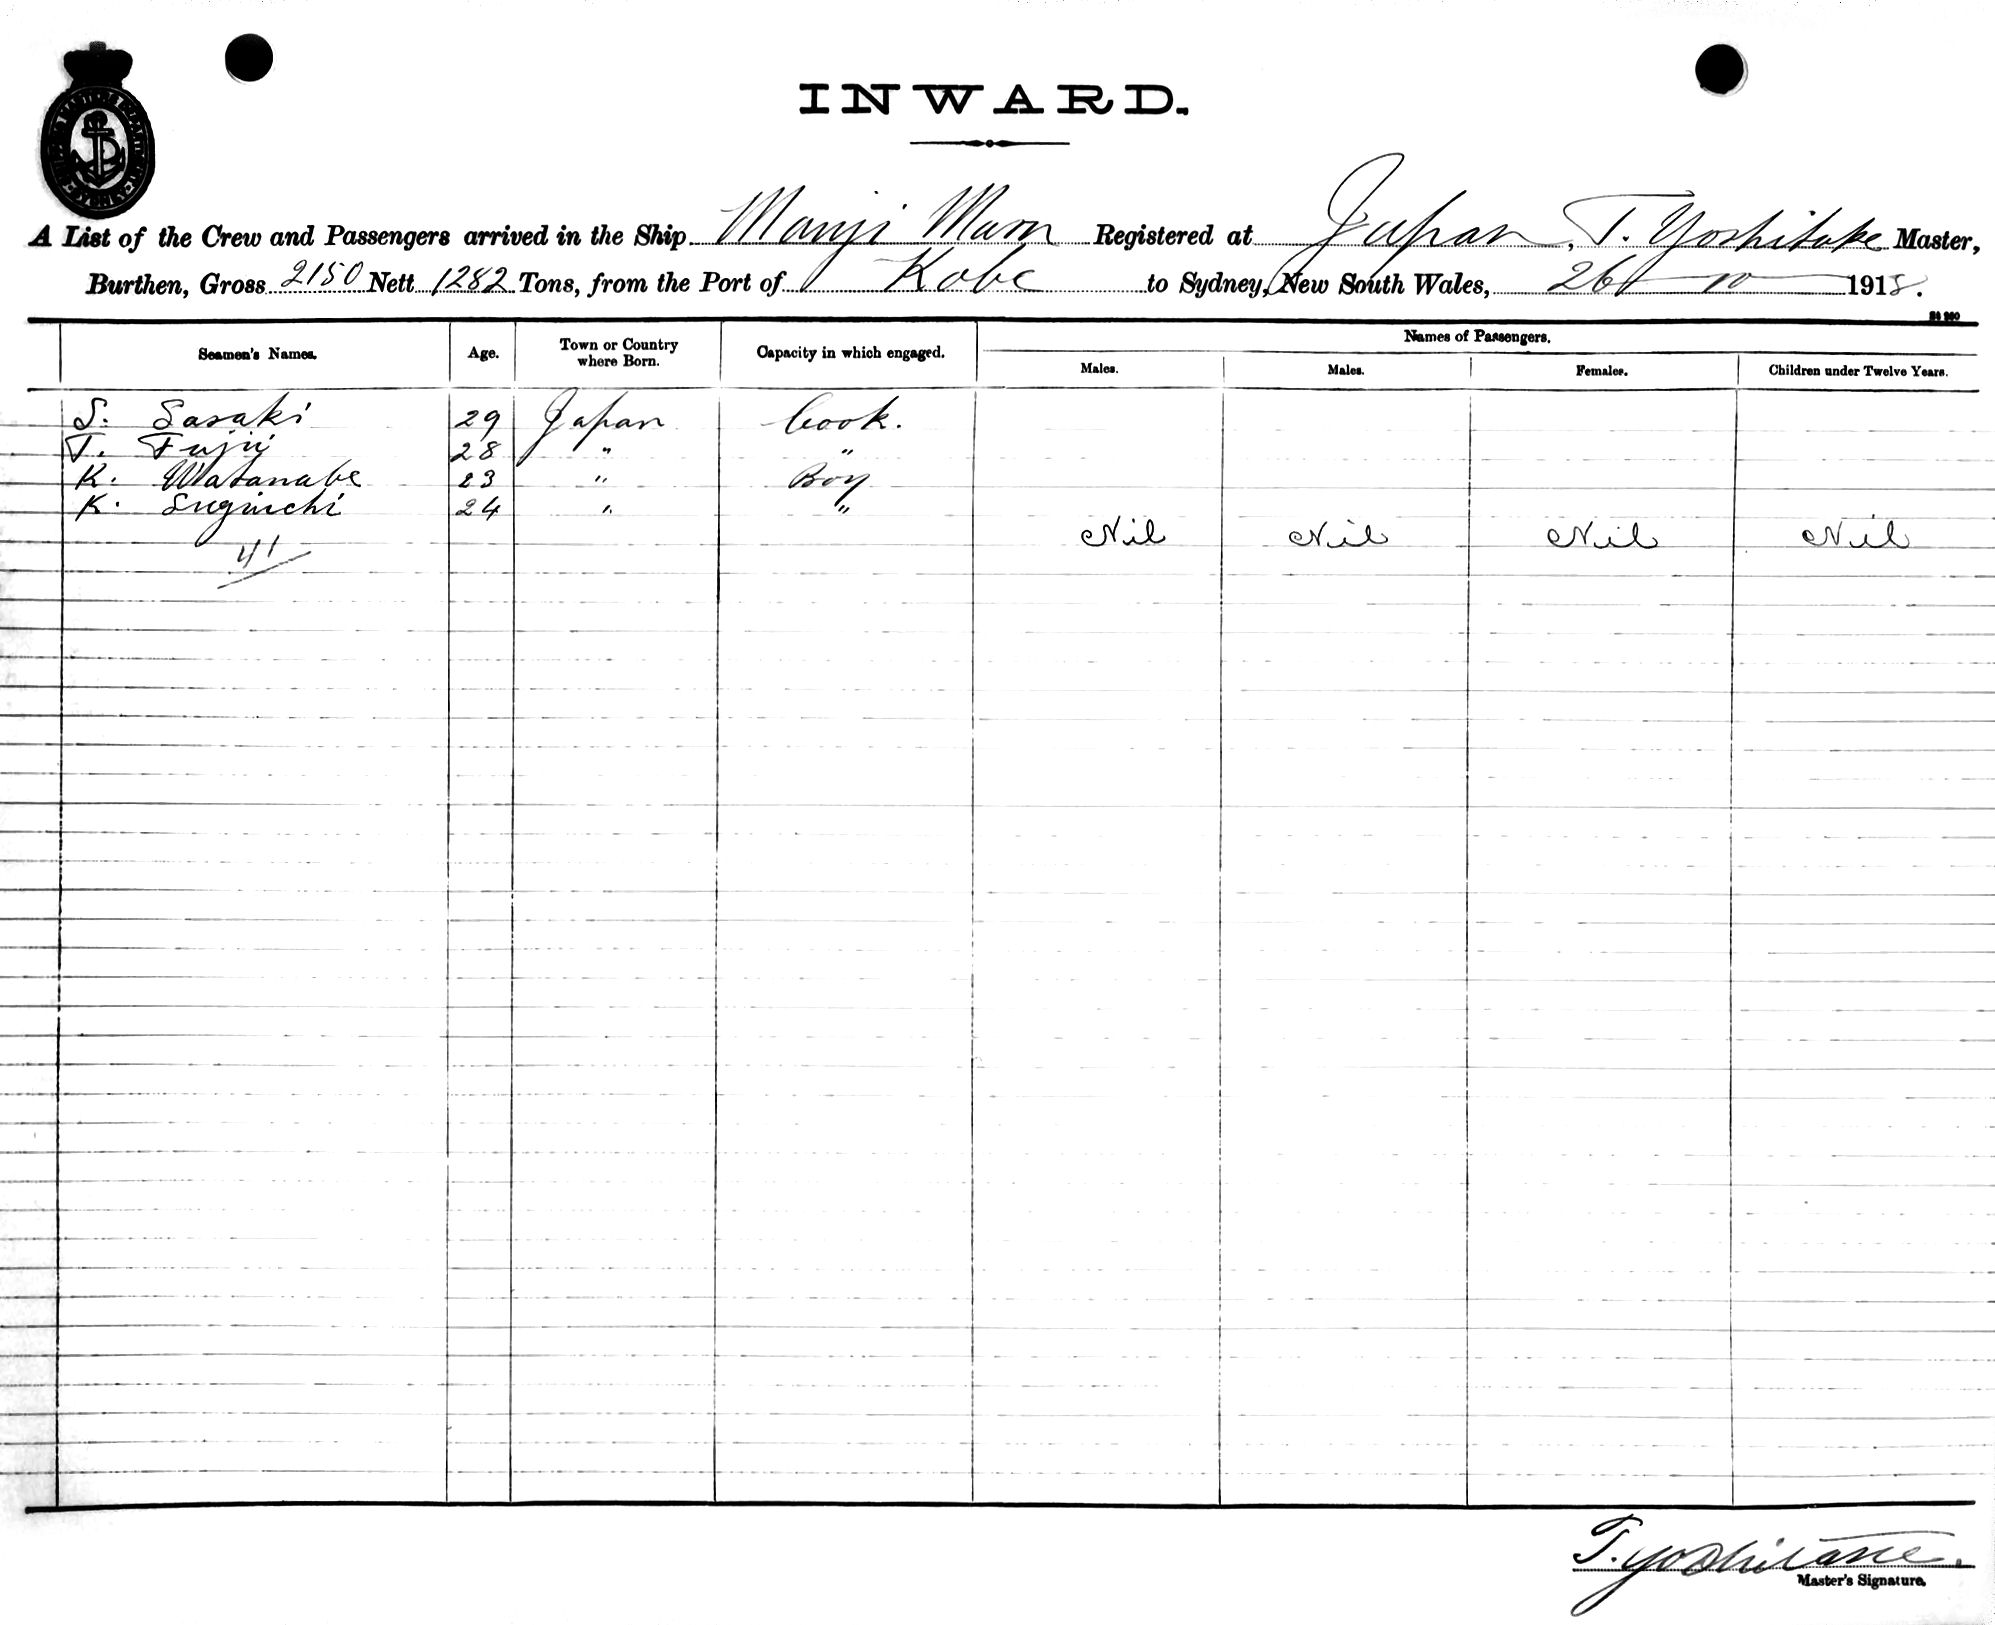 INWARD.
A List of the Crew and Passengers arrived in the Ship Manji Maru Registered at Japan, T. Yoshitake Master,
Burthen, Gross 2150 Nett 1282 Tons, from the Port of Kobe to Sydney, New South Wales, 26 - 10 - 1918.
Seamen's Names. Age. Town or Country where Born. Capacity in which engaged. Names of Passengers.
Males. Males. Females. Children under Twelve Years.
S. Sasaki 29 Japan Cook.
T. Fujii 28 " "
K. Watanabe 23 " Boy
K. Suginchi 24 " "
Nil Nil Nil Nil
41
T. Yoshitake.
Master's Signature.